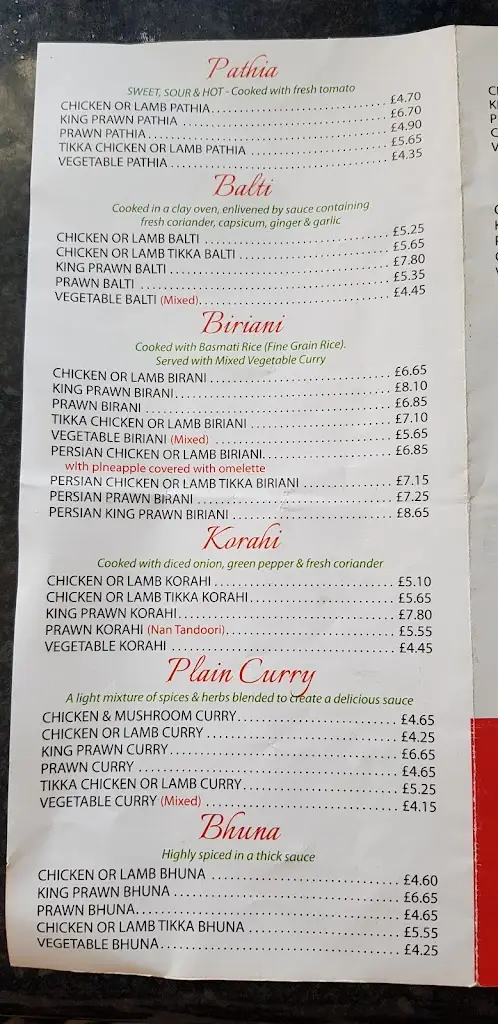 Pathia
SWEET, SOUR & HOT - Cooked with fresh tomato
CHICKEN OR LAMB PATHIA £4.70
KING PRAWN PATHIA £6.70
PRAWN PATHIA £4.90
TIKKA CHICKEN OR LAMB PATHIA £5.65
VEGETABLE PATHIA £4.35
Balti
Cooked in a clay oven, enlivened by sauce containing
fresh coriander, capsicum, ginger & garlic
CHICKEN OR LAMB BALTI £5.25
CHICKEN OR LAMB TIKKA BALTI £5.65
KING PRAWN BALTI £7.80
PRAWN BALTI £5.35
VEGETABLE BALTI (Mixed) £4.45
Biriani
Cooked with Basmati Rice (Fine Grain Rice).
Served with Mixed Vegetable Curry
CHICKEN OR LAMB BIRANI £6.65
KING PRAWN BIRANI £8.10
PRAWN BIRANI £6.85
TIKKA CHICKEN OR LAMB BIRIANI £7.10
VEGETABLE BIRIANI (Mixed) £5.65
PERSIAN CHICKEN OR LAMB BIRIANI £6.85
with pineapple covered with omelette
PERSIAN CHICKEN OR LAMB TIKKA BIRIANI £7.15
PERSIAN PRAWN BIRANI £7.25
PERSIAN KING PRAWN BIRIANI £8.65
Korahi
Cooked with diced onion, green pepper & fresh coriander
CHICKEN OR LAMB KORAHI £5.10
CHICKEN OR LAMB TIKKA KORAHI £5.65
KING PRAWN KORAHI £7.80
PRAWN KORAHI (Nan Tandoori) £5.55
VEGETABLE KORAHI £4.45
Plain Curry
A light mixture of spices & herbs blended to create a delicious sauce
CHICKEN & MUSHROOM CURRY £4.65
CHICKEN OR LAMB CURRY £4.25
KING PRAWN CURRY £6.65
PRAWN CURRY £4.65
TIKKA CHICKEN OR LAMB CURRY £5.25
VEGETABLE CURRY (Mixed) £4.15
Bhuna
Highly spiced in a thick sauce
CHICKEN OR LAMB BHUNA £4.60
KING PRAWN BHUNA £6.65
PRAWN BHUNA £4.65
CHICKEN OR LAMB TIKKA BHUNA £5.55
VEGETABLE BHUNA £4.25